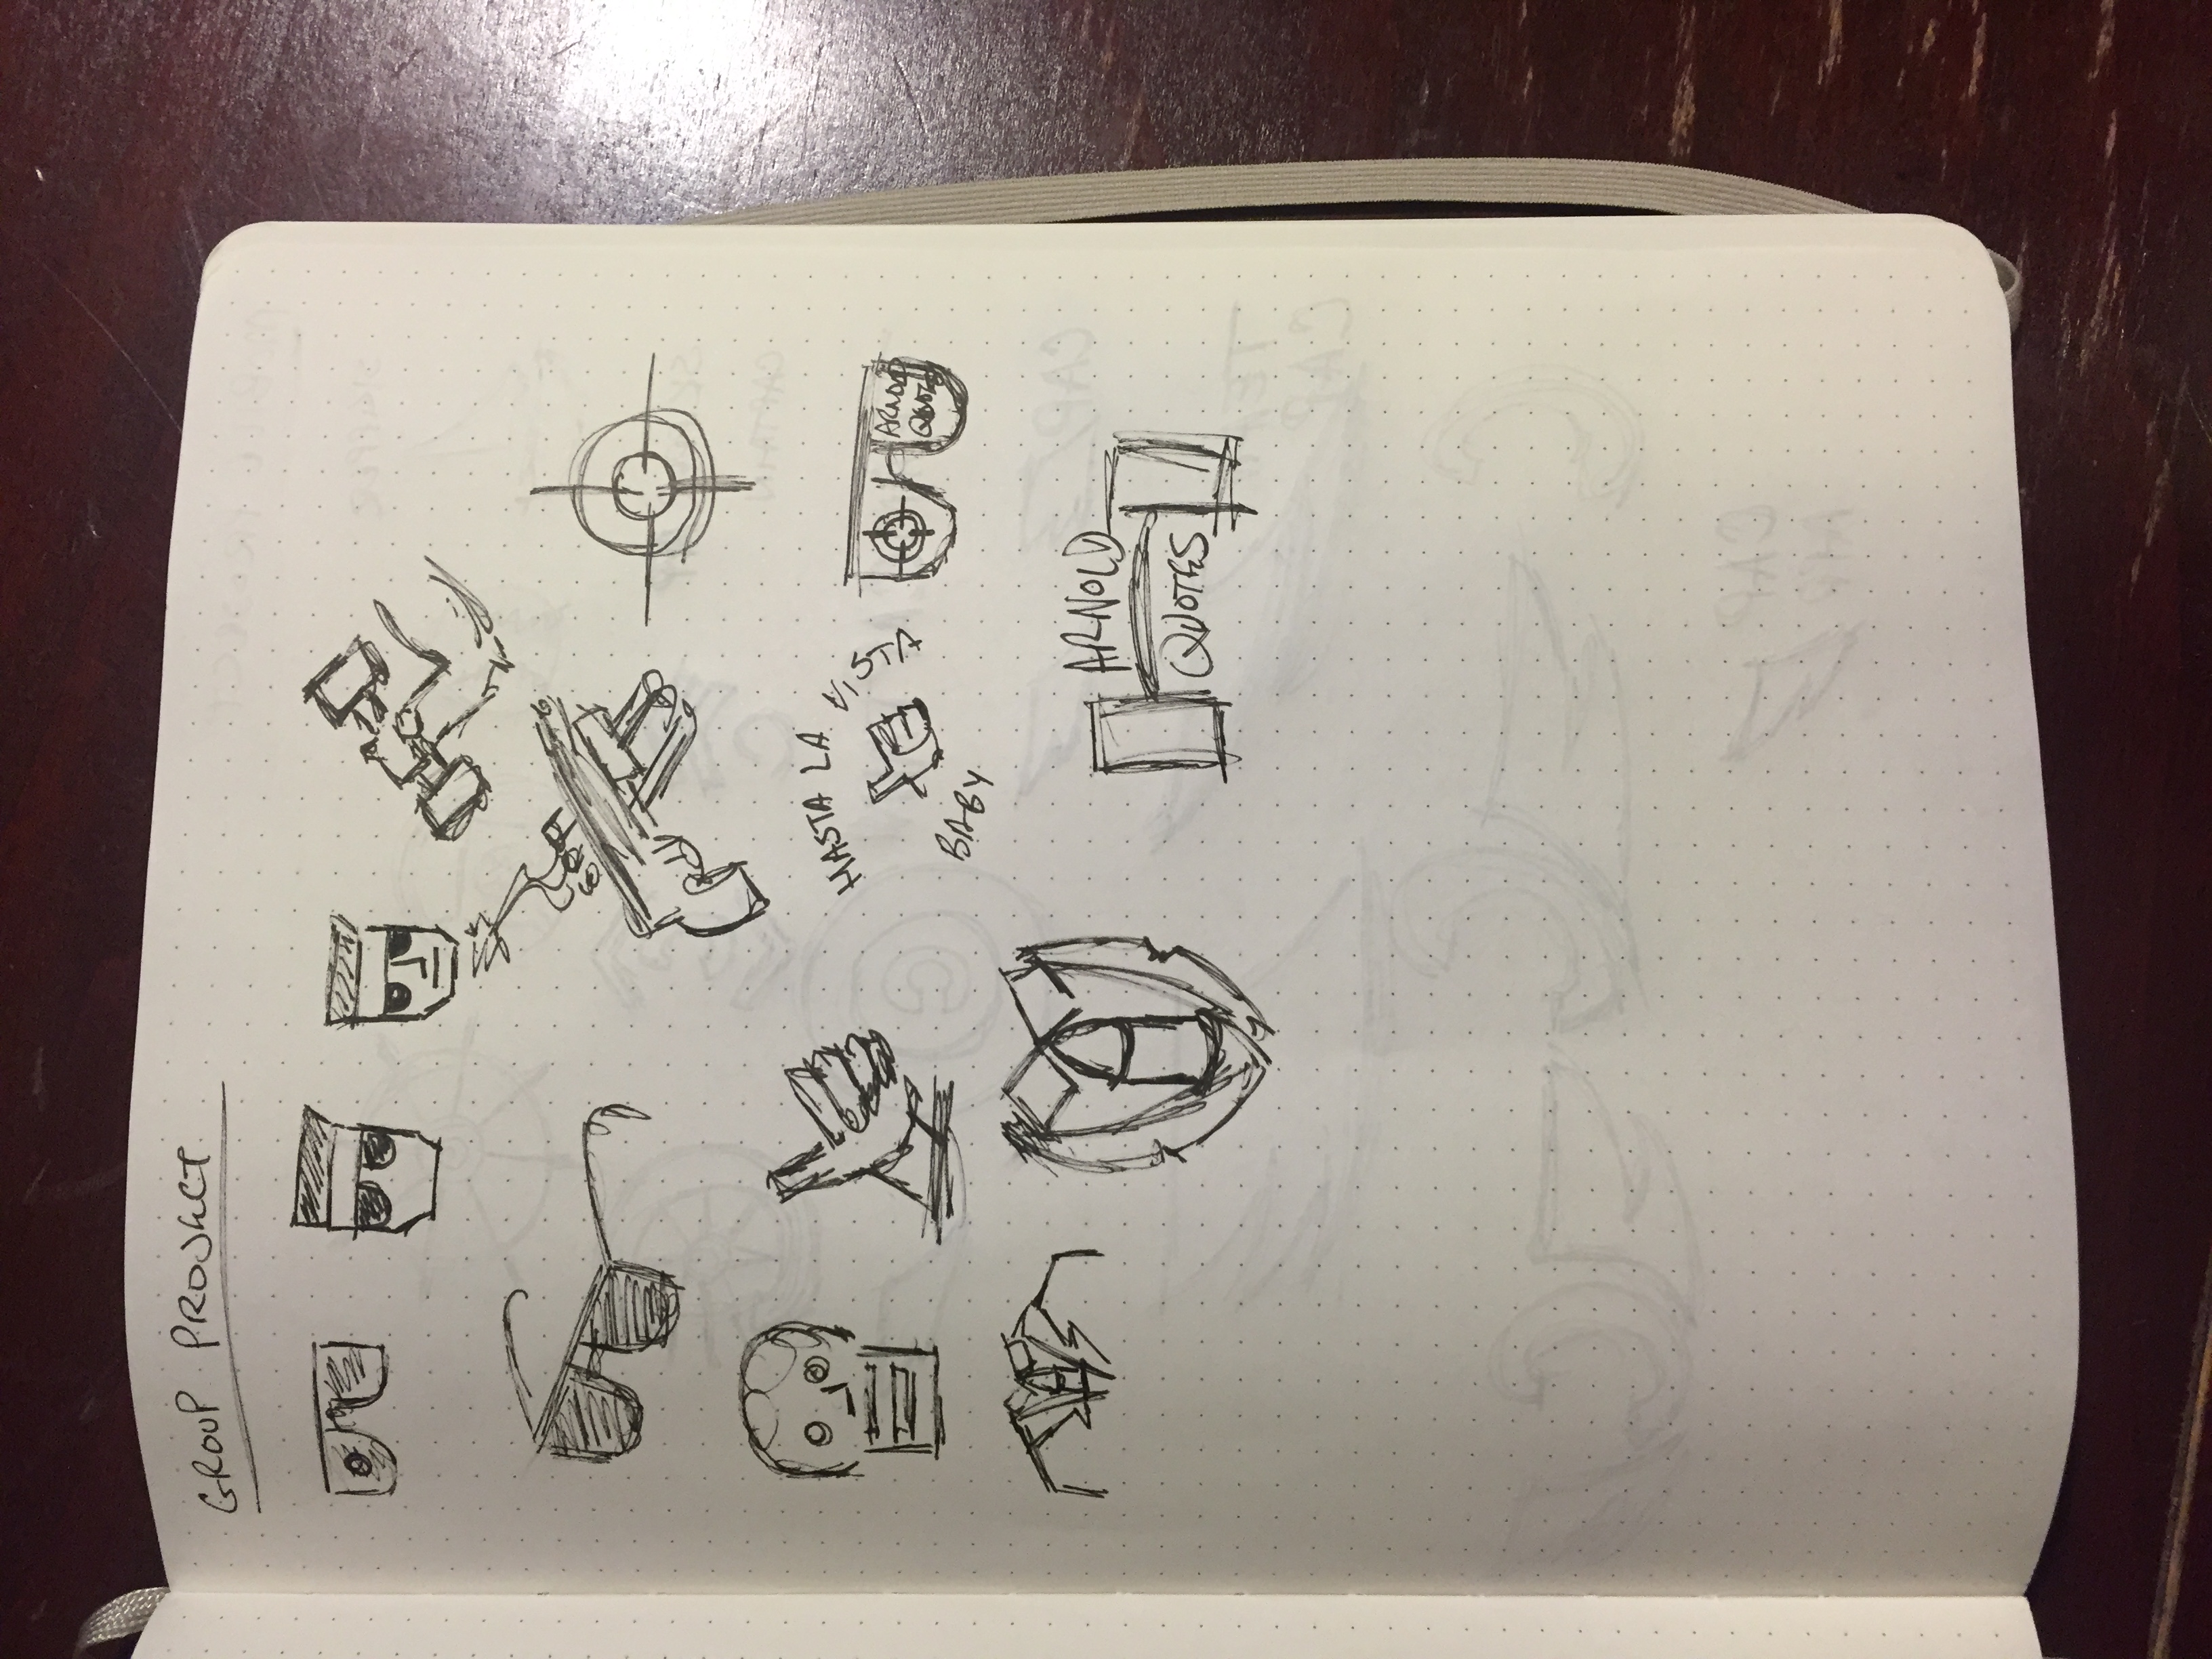 GROUP PROJECT
HASTA LA VISTA
BABY
ARNOLD
QUOTE
ARNOLD
QUOTES